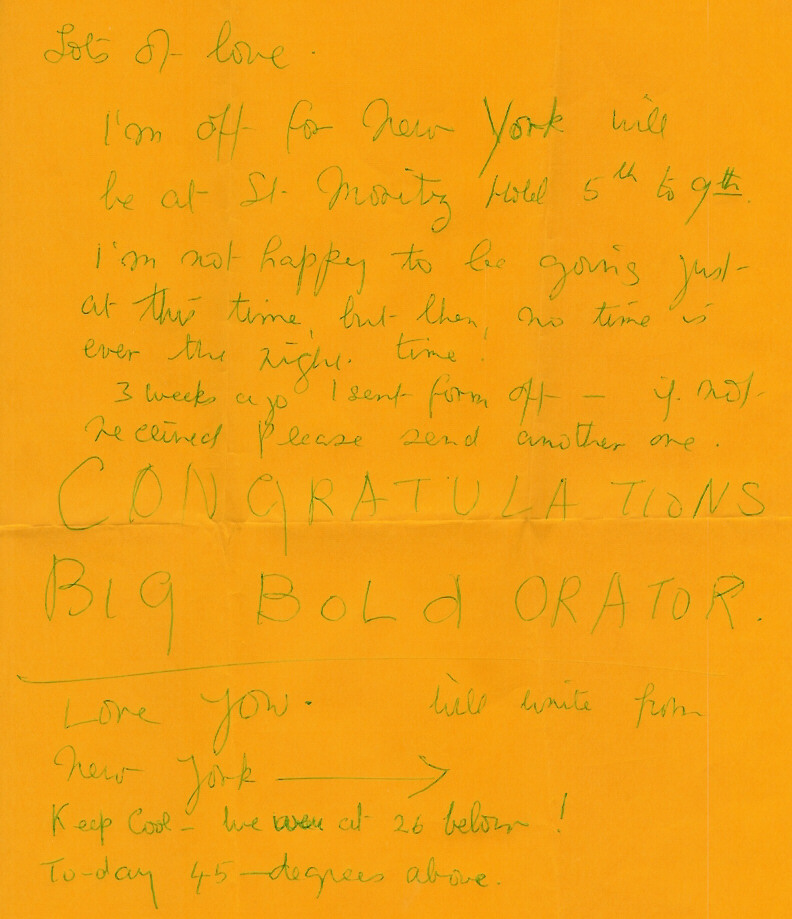 Lots of love.
I'm off for New York will
be at St. Moritz Hotel 5th to 9th.
I'm not happy to be going just
at this time, but then, no time is
ever the right time!
3 weeks ago I sent form off – if not
received please send another one.
CONGRATULATIONS
BIG BOLD ORATOR.
Love You. Will write from
New York →
Keep Cool – We were at 26 below!
To-day 45 – degrees above.